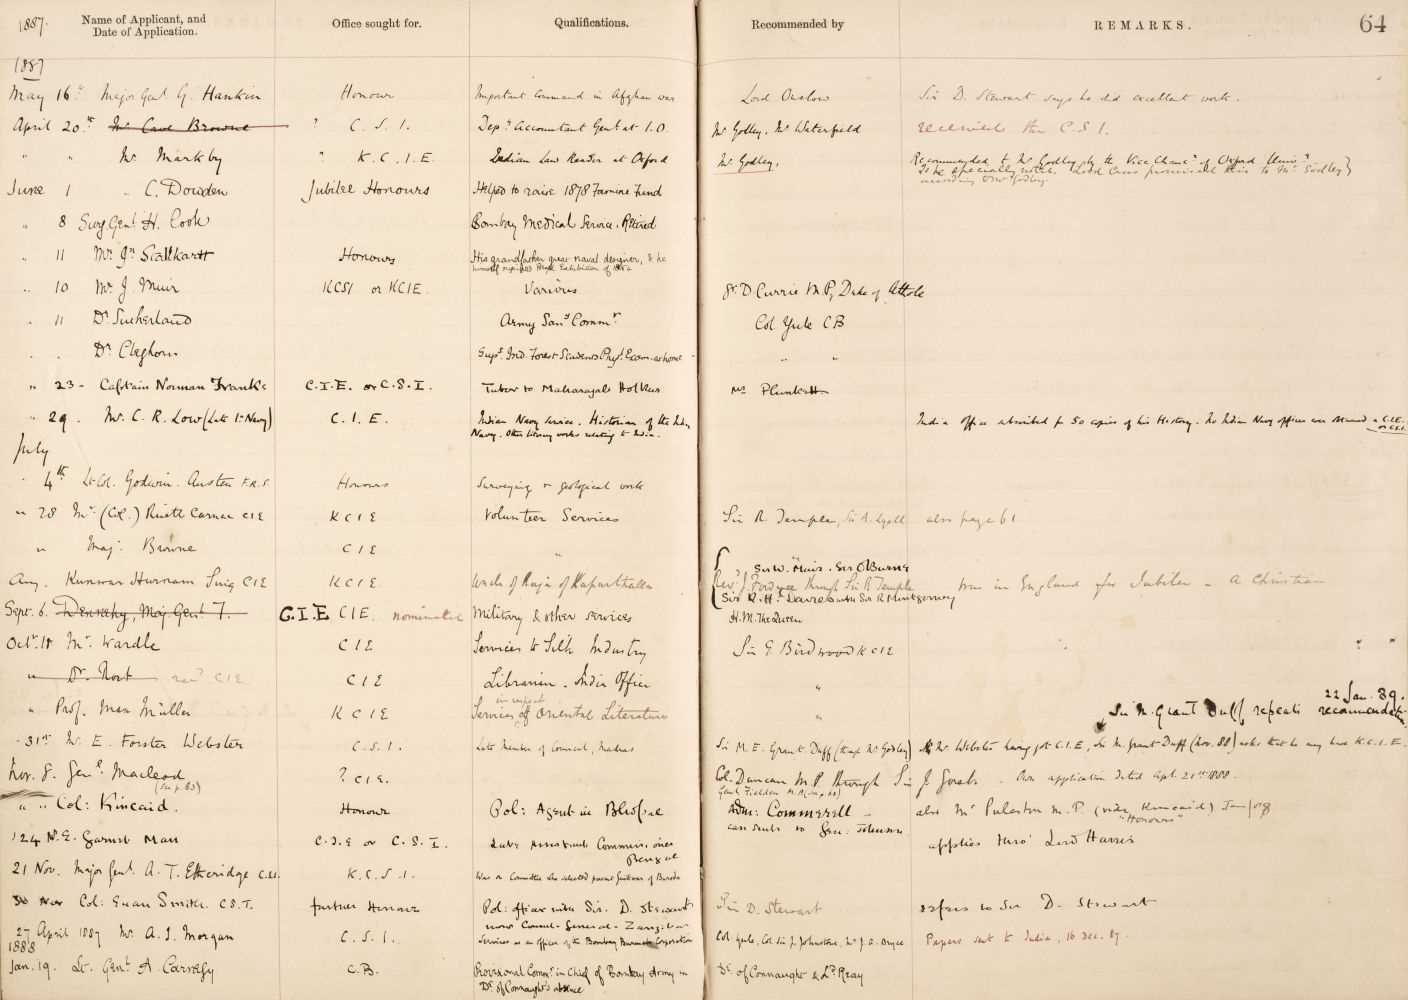 1887. Name of Applicant, and Date of Application. Office sought for. Qualifications. Recommended by REMARKS. 64
1887
May 16th Major Genl G. Hankin Honour Important Command in Afghan war Lord Onslow Sir D. Stewart says he did excellent work.
April 20th Mr Cave Browne " C.S.I. Depy Accountant Genl at I.O. Mr Godley. Mr Waterfield received the C.S.I.
" " Mr Markby " K.C.I.E. Indian Law Reader at Oxford Mr Godley. Recommended to Mr Godley by the Vice Chancr of Oxford Univy
to be specially noted. Lord Cross promised this to Mr Godley
according to Mr Godley
June 1 " C. Dowden Jubilee Honours Helped to raise 1878 Famine Fund
" 8 Surg. Genl H. Cook Bombay Medical Service. Retired
" 11 Mr Jn Stalkartt Honours His grandfather great naval designer, & he
himself Exhibition of
" 10 Mr J. Muir KCSI or KCIE. Various Sr D Currie M.P, Duke of Athole
" 11 Dr Sutherland Army Sany Commn Col Yule CB
" " Dr Cleghorn Supt. Ind. Forest Students Phyl. Exam. at home " "
" 23 - Captain Norman Franks C.I.E. or C.S.I. Tutor to Maharajah Holkar Mr Plunkett
" 29. Mr. C. R. Low (late In Navy) C.I.E. Indian Navy Service. Historian of the Indn
Navy. Other literary works relating to India. India Office subscribed for 50 copies of his History. No Indian Navy officer ever obtained a C.I.E. or C.S.I.
July
" 4th Lt Col. Godwin-Austen F.R.S. Honours Surveying & geological work
" 28 Mr (Col.) Rivett Carnac CIE KCIE Volunteer Services Sir R. Temple, Sir A. Lyall also page 61
" Maj. Browne CIE " "
Aug. Kunwar Hurnam Sing CIE KCIE. Uncle of Raja of Kapurthalla Sir W. Muir. Sir O. Burne
Revd J. Fordyce through Sir R Temple
Sir R. H. Davies with Sir R Montgomery was in England for Jubilee - A Christian
Sept. 6. Dennehy, Maj. Genl T. C.I.E CIE. nominated Military & other services H.M. The Queen
Octr 18 Mr. Wardle CIE Services to Silk Industry Sir G Birdwood KCIE " "
" Dr. Rost recd CIE CIE Librarian. India Office "
" Prof. Max Müller KCIE in respect
Services of Oriental Literature " 22 Jan. 89.
Sir M. Grant Duff repeats recommendatn
" 31st Mr. E. Forster Webster C.S.I. Late Member of Council, Madras Sir M. E. Grant Duff (thro' Mr Godley) Mr. Webster having got C.I.E, Sir M. Grant Duff (Nov. 88) asks that he may have K.C.I.E.
Nov. 8. Genl. Macleod (See p. 63) ? CIE. Col. Duncan M.P. through Sir J. Gorst. Own application dated Apl. 21st 1888.
Genl. Fielden M.P. (see p. 63)
" " Col: Kincaid. Honour Pol: Agent in Bhopal Adm: Commerell also Mr Puleston M.P. (vide Kincaid) Jany/88
"Honours"
" 24 Mr. E. Garnet Man C.I.E or C.S.I. Late Assistant Commissioner
Bengal can send to Gen: Johnson applies thro' Lord Harris
21 Nov. Major Genl. A. T. Etheridge C.S.I. K.C.S.I. Was on Committee who selected present Gaikwar of Baroda
30 Nov Col: Euan Smith. C.S.I. further Honour Pol: officer under Sir. D. Stewart
now Consul-General - Zanzibar Sir D. Stewart refers to Sir D. Stewart
27 April 1887 Mr. A. I. Morgan C.S.I. Services as an officer of the Bombay Burmah Corporation Col Yule, Col Sir J. Johnstone, Mr J. A. Bryce Papers sent to India, 16 Dec. 87.
1888
Jan. 19. Lt. Genl A Carnegy C.B. Provisional Commr. in Chief of Bombay Army in
De. of Connaught's absence De. of Connaught & Ld. Reay